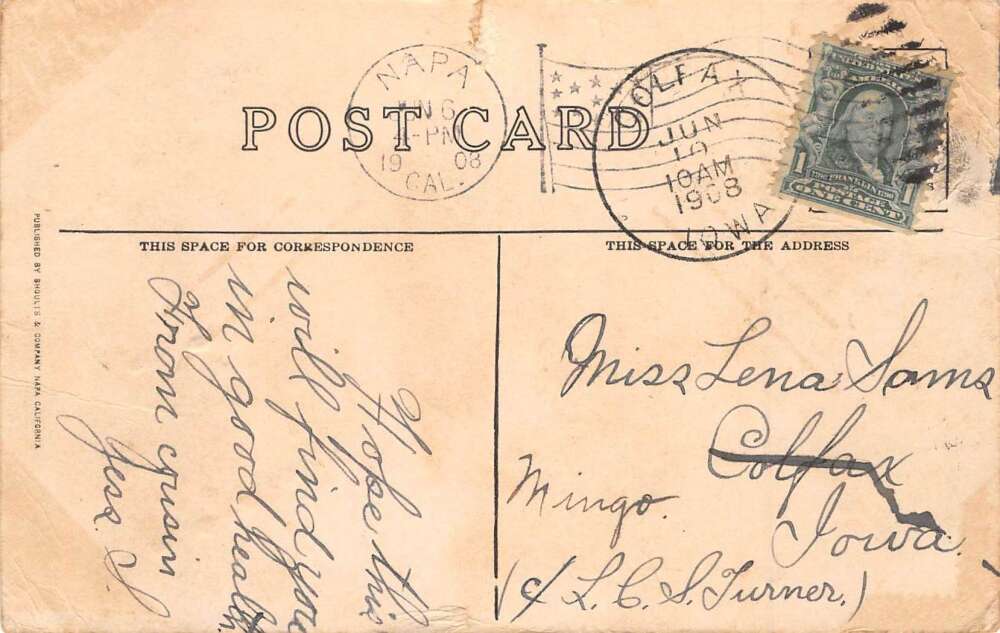 POST CARD
NAPA
JUN 6
4-PM
19 08
CAL.
COLFAX
JUN
10
10AM
1908
IOWA
UNITED STATES OF
AMERICA
1706 FRANKLIN 1790
POSTAGE
1 ONE CENT 1
THIS SPACE FOR CORRESPONDENCE
THIS SPACE FOR THE ADDRESS
PUBLISHED BY SHOULTS & COMPANY NAPA CALIFORNIA
Hope this
will find you
in good health
From cousin
Jess. S.
Miss Lena Sams
Colfax
Mingo.
Iowa.
(c/ L. C. S. Turner.)